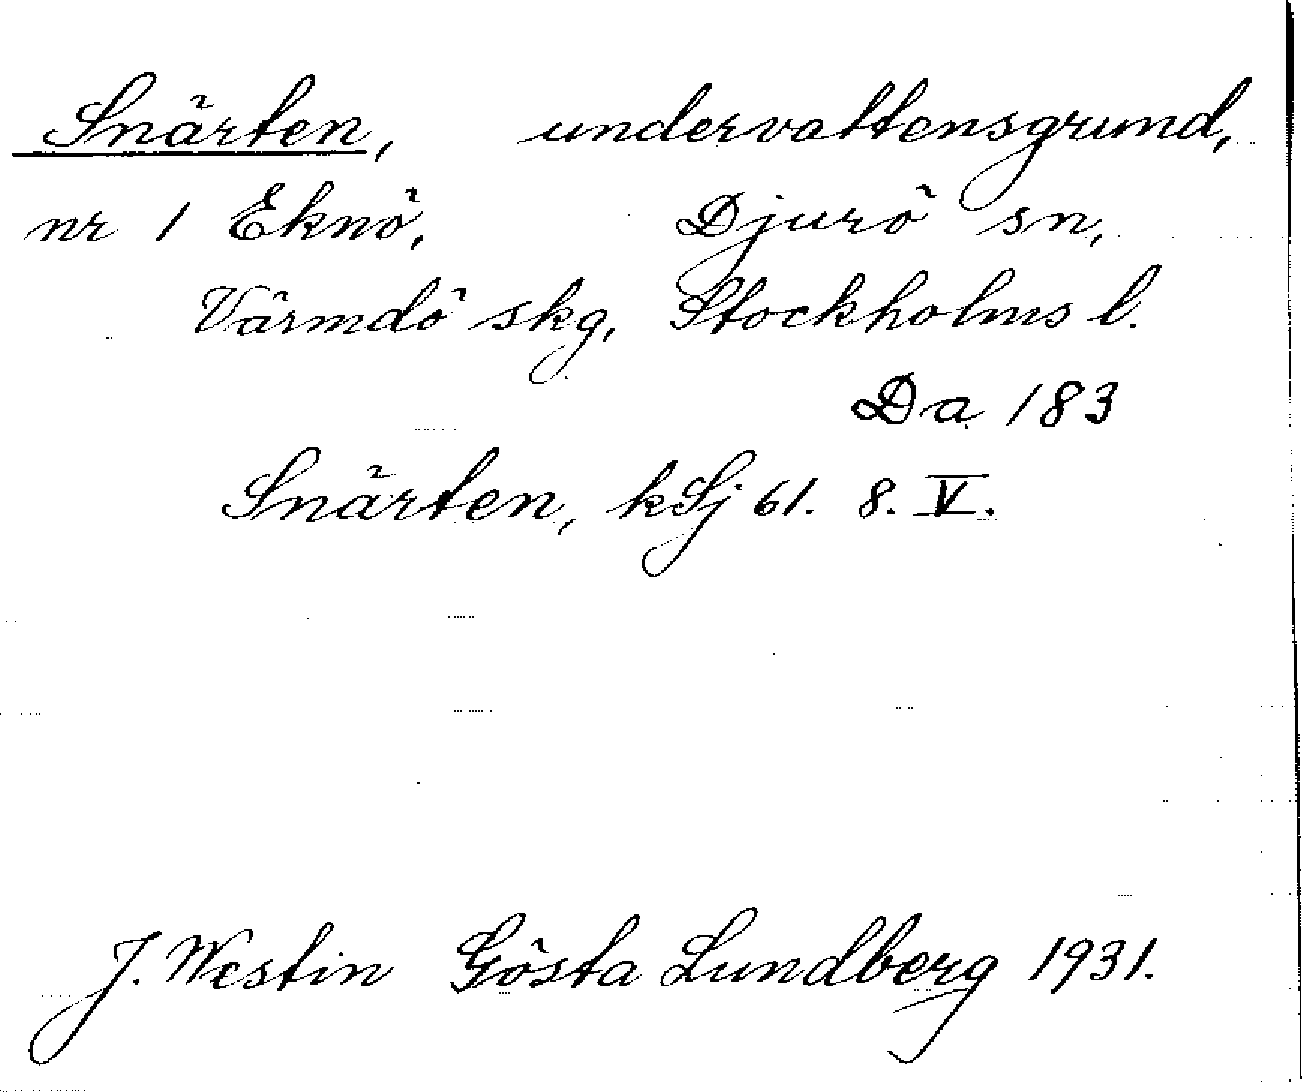 Snärten, undervattensgrund,
nr 1 Eknö, Djurö sn,
Värmdö skg, Stockholms l.
Da 183
Snärten, kSj 61. 8. V.
J. Westin Gösta Lundberg 1931.